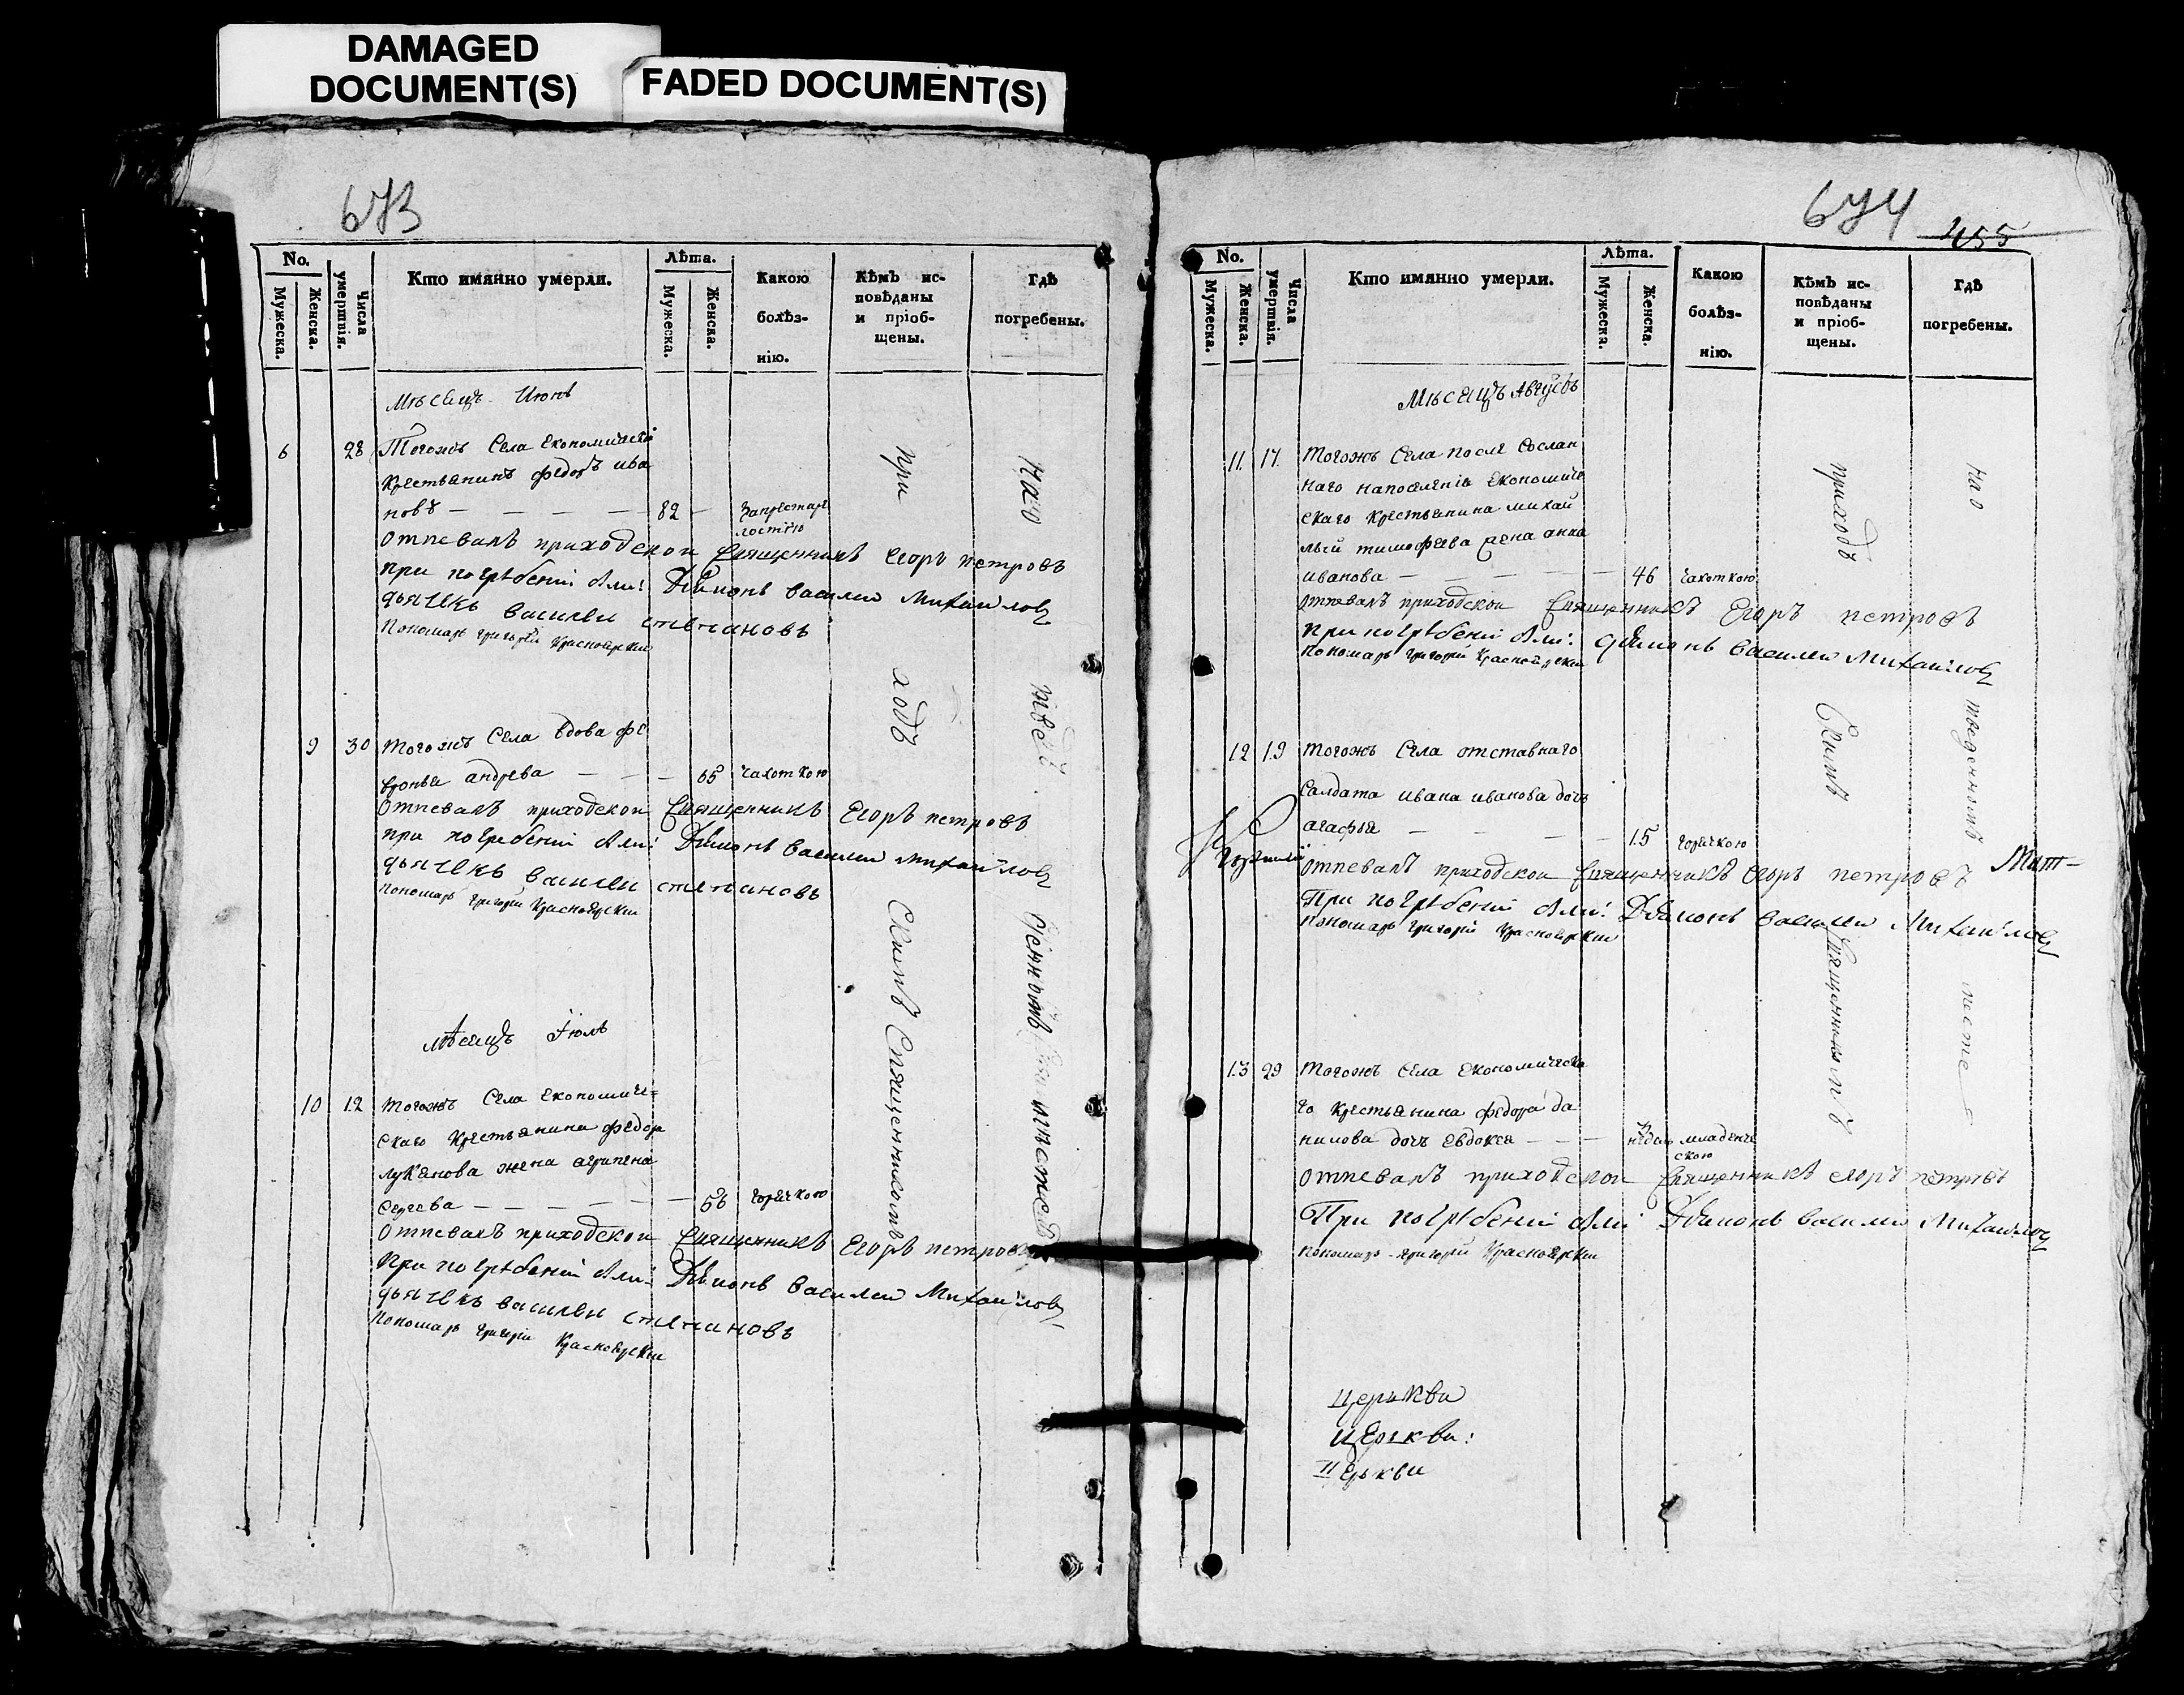 DAMAGED
DOCUMENT(S)
FADED DOCUMENT(S)
673
No.
Мужеска.
Женска.
Числа умертвія.
Кто имянно умерли.
Лѣта.
Мужеска.
Женска.
Какою
болѣз-
нію.
Кѣмъ ис-
повѣданы
и пріоб-
щены.
Гдѣ
погребены.
Мѣсяцъ Июнь
6 28 Тогожъ Села Економически
Крестьянинъ федоръ ива
новъ — — — — 82 —
отпевалъ приходскои Священникъ егоръ петровъ
при погрѣбенїи были: Дьяконъ василеи михаиловъ
дьячекъ василеи степановъ
Пономарь григорїй Красноярскии
9 30 тогожъ Села вдова фе
вронья андрева — — — 65 чахоткою
отпевалъ приходскои Священникъ Егоръ петровъ
при погребенїи были: Дьяконъ василеи михаиловъ
дьячекъ василеи степановъ
пономарь григорїй Красноярскии
Мѣсяцъ Іюль
10 12 тогожъ Села економиче=
скаго Крестьянина федора
лукянова жена агрипена
Сергева — — — — — 56 горячкою
Отпевалъ приходскои Священникъ Егоръ петровъ
при погрѣбенїи были: Дьяконъ василеи Михаиловъ
дьячекъ василеи степановъ
пономарь григорїи Красноярскии
при
ходъ
скимъ Священникомъ
на о
месте
674
455
No.
Мужеска.
Женска.
Числа умертвія.
Кто имянно умерли.
Лѣта.
Мужеска.
Женска.
Какою
болѣз-
нію.
Кѣмъ ис-
повѣданы
и пріоб-
щены.
Гдѣ
погребены.
Мѣсяцъ Августъ
11 17 тогожъ Села после Сослан
наго напоселенїя Економиче
скаго Крестьянина михай
лы тимофѣева жена анна
иванова — — — — — 46 чахоткою
отпевалъ приходскои Священникъ Егоръ петровъ
при погрѣбенїи были: дьяконъ василеи Михаиловъ
пономарь григорїй Красноярскии
12 19 тогожъ Села отставнаго
Салдата ивана иванова дочь
агафья — — — — 15 горячкою
отпевалъ приходскои Священникъ Егоръ петровъ
При погрѣбенїи были: Дьяконъ василеи Михаиловъ
пономарь григорїй Красноярскии
13 29 тогожъ Села Економическа
го Крестьянина федора да
нилова дочь евдокея — — — недель младенче
скою
отпевалъ приходскои Священникъ егоръ петровъ
При погрѣбенїи были Дьяконъ василеи Михаиловъ
пономарь григорїй Красноярскии
приходъ
скимъ
Священникомъ
на о
веденномъ
месте
Церькви
Церькви:
Церькви